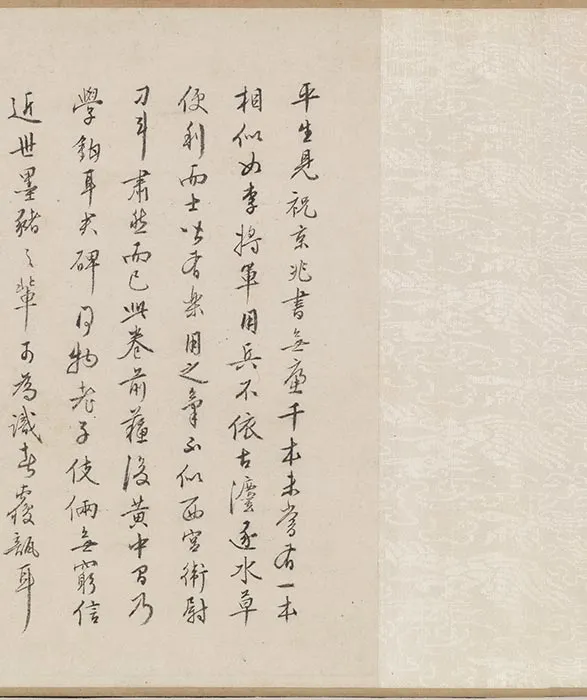 平生見祝京兆書無慮千本未嘗有一本
相似如李將軍用兵不依古灋逐水草
便利而士皆有樂用之氣不似西宮衛尉
刁斗肅然而已此卷前蘇後黃中間乃
學耳碑何物老子伎倆無窮信
近世墨豬之輩可為識者覆瓿耳